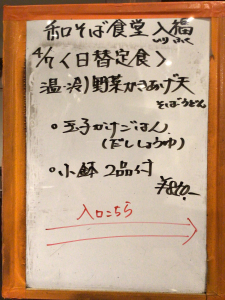 和そば食堂 入福
いりふく
4/7 <日替定食>
温・冷 野菜かきあげ天
そばうどん
○玉子かけごはん
(だししょうゆ)
○小鉢 2品付
入口こちら